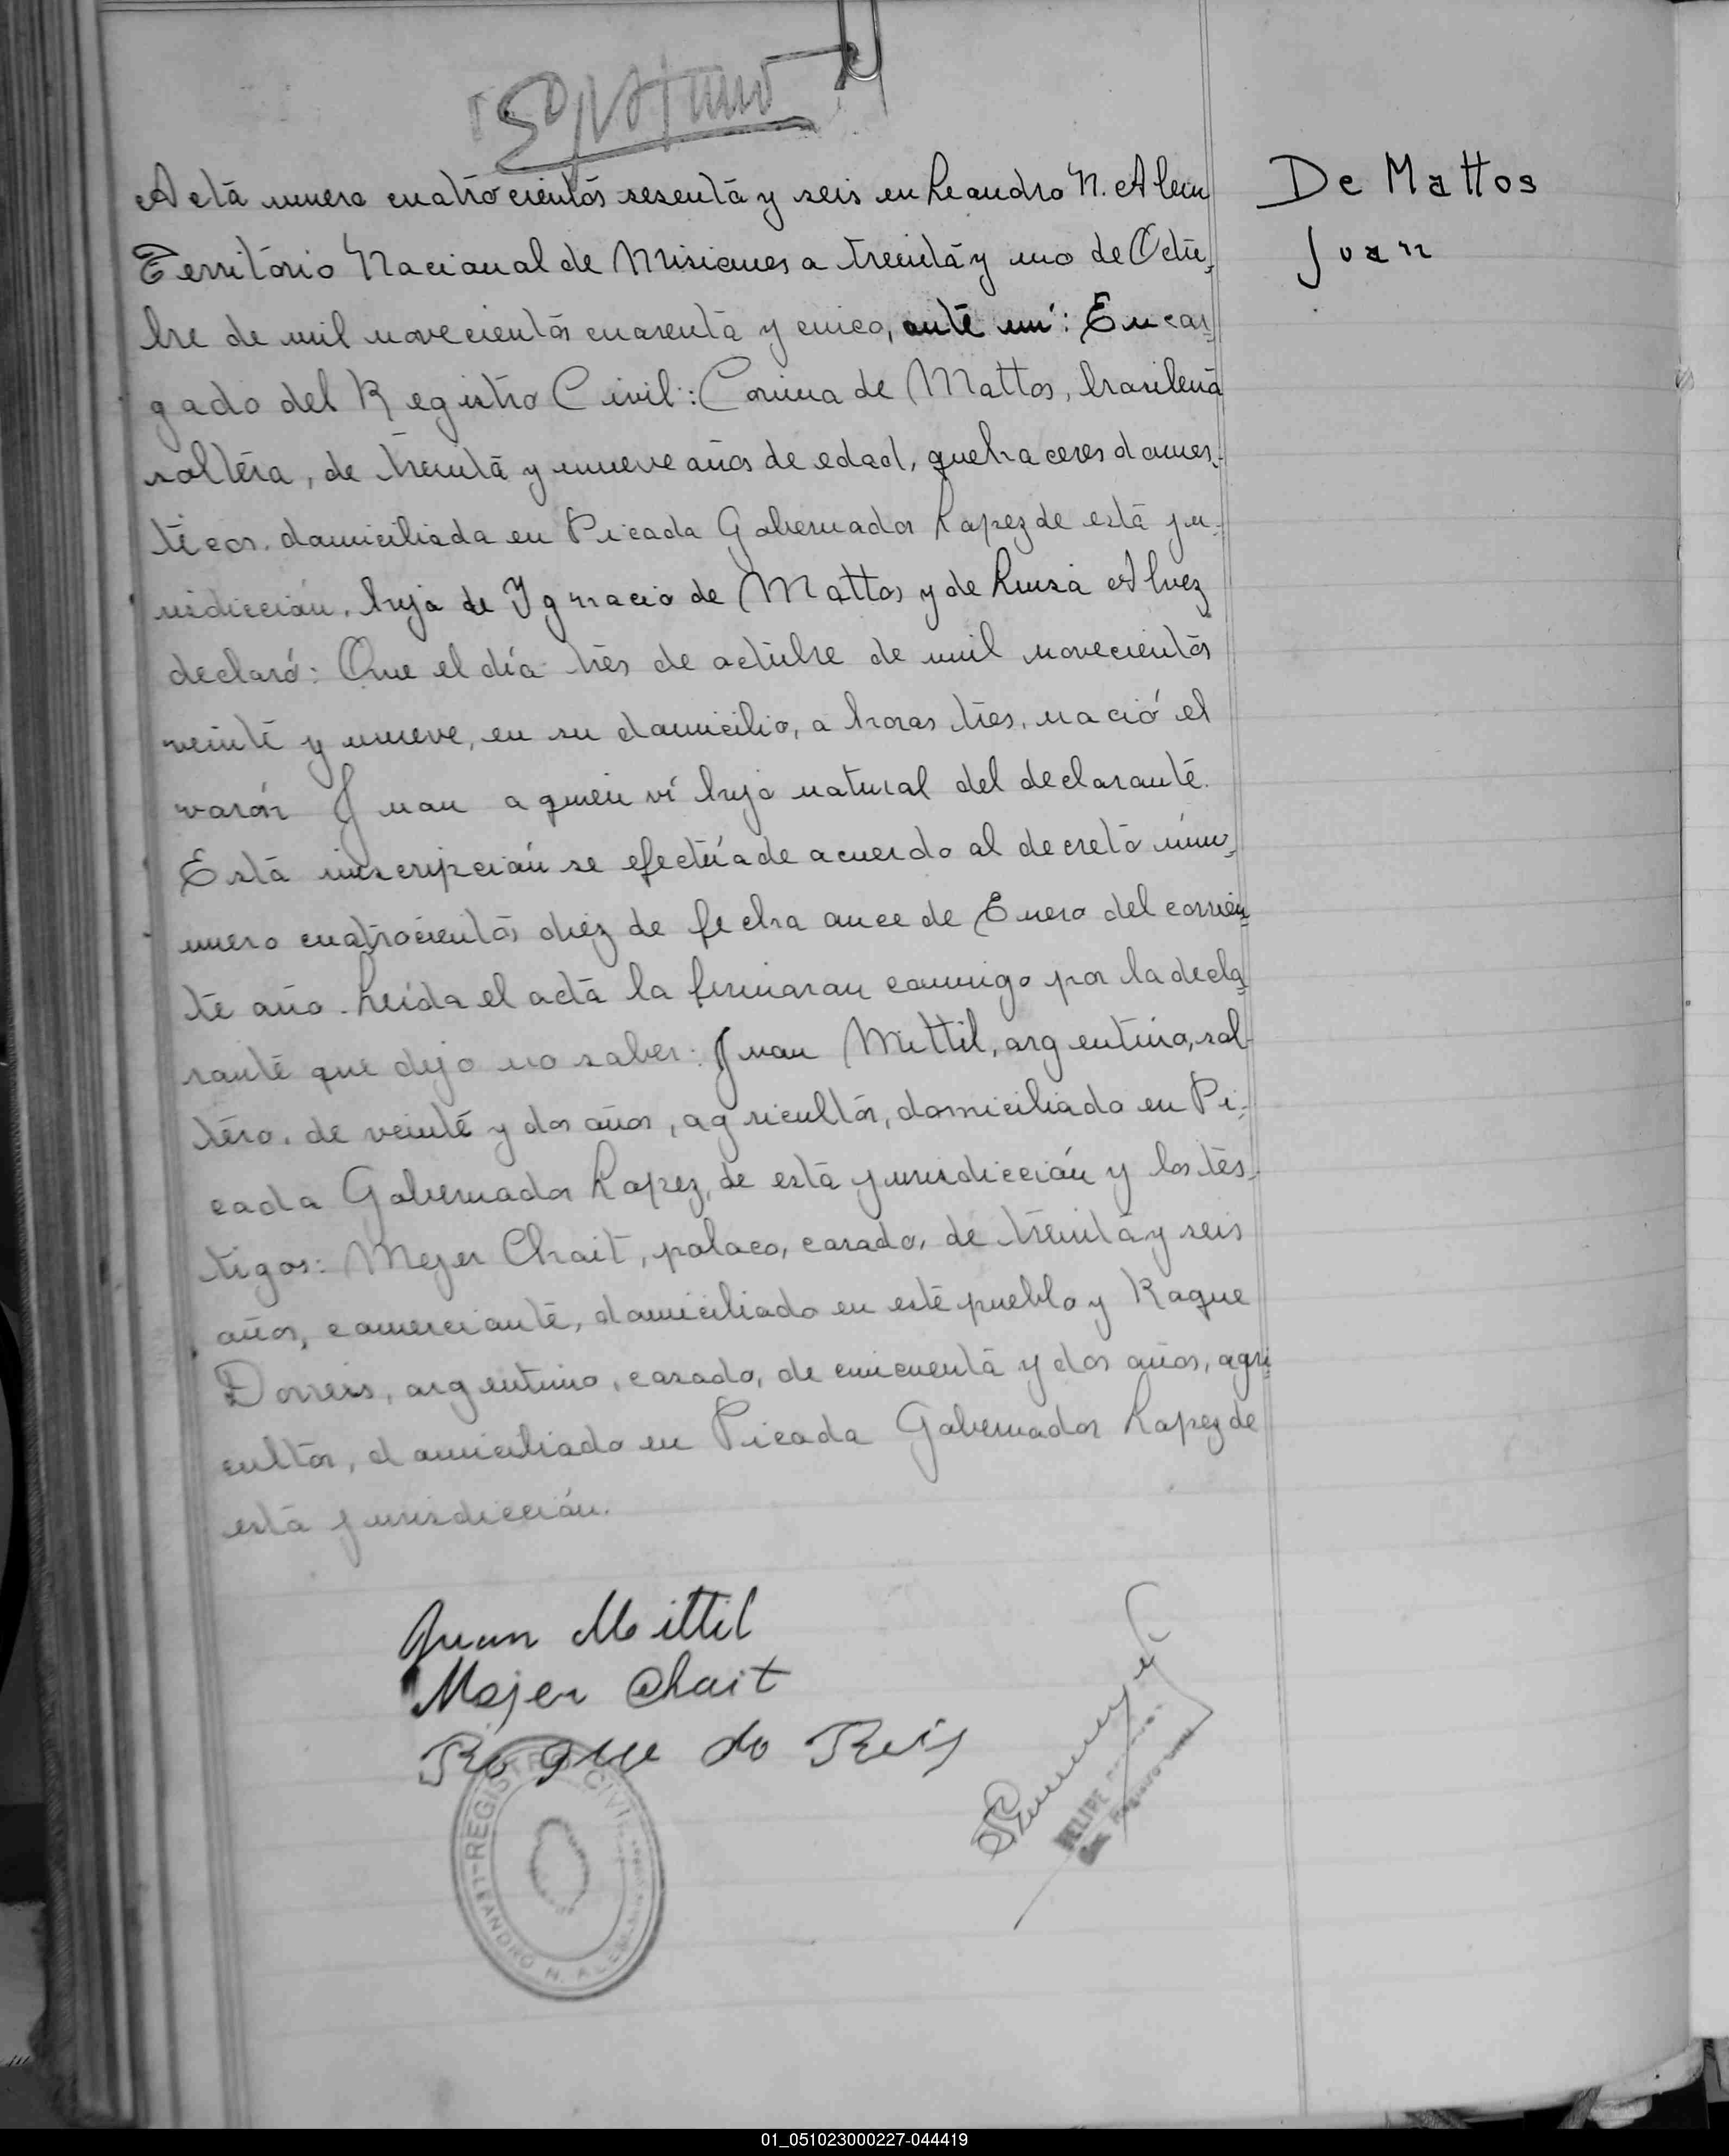 Acta numero cuatrocientos sesenta y seis en Leandro N. Alem
Territorio Nacional de Misiones a treinta y uno de Octu-
bre de mil novecientos cuarenta y cinco, ante mí: Encar-
gado del Registro Civil: Corina de Mattos, brasilena
soltera, de treinta y nueve años de edad, quehaceres domes-
ticos, domiciliada en Picada Gobernador Lopez de esta ju-
risdicción, hija de Ignacio de Mattos y de Luisa Alvez
declaró: Que el día tres de octubre de mil novecientos
veinte y nueve, en su domicilio, a horas tres, nació el
varón Juan a quien ví hijo natural del declarante.
Esta inscripción se efectúa de acuerdo al decreto núm-
mero cuatrocientos diez de fecha once de Enero del corrien-
te año. Leída el acta la firmaran conmigo por la decla-
rante que dijo no saber: Juan Mittil, argentino, sol-
tero, de veinte y dos años, agricultor, domiciliado en Pi-
cada Gobernador Lopez, de esta jurisdicción y los tes-
tigos: Mejer Chait, polaco, casado, de treinta y seis
años, comerciante, domiciliado en este pueblo y Roque
Dorreis, argentino, casado, de cincuenta y dos años, agri-
cultor, domiciliado en Picada Gobernador Lopez de
esta jurisdicción.
De Mattos
Juan
Juan Mittil
Mejer Chait
Roque do Reis
REGISTRO CIVIL
LEANDRO N. ALEM
FELIPE
01_051023000227-044419